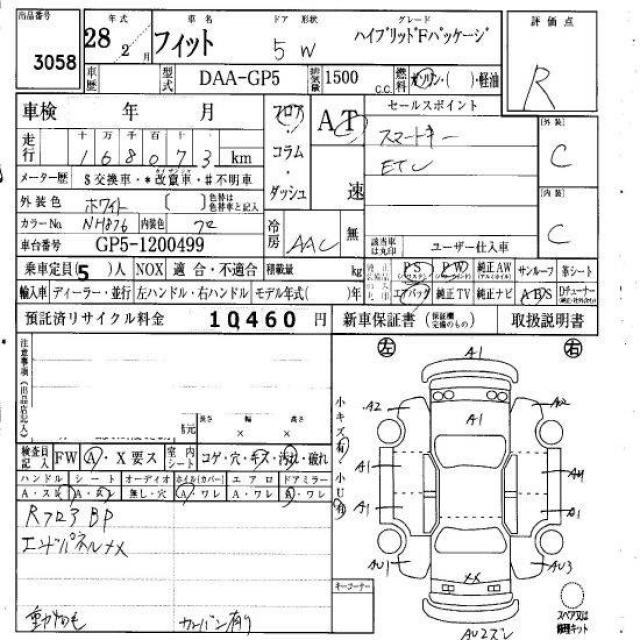 出品番号 3058
28 年式 2 月
車名 フィット
ドア 形状 5 W
グレード ハイブリッドFパッケージ
評価点 R
車歴
型式 DAA-GP5
排気量 1500 c.c.
燃料 ガソリン・( )・軽油
車検 年 月
フロア・コラム・ダッシュ
AT 速
セールスポイント
スマートキー
ETC
[外装] C
[内装] C
走行 十 万 千 百 十
168073 km
メーター歴 $交換車・*改竄車・#不明車
外装色 ホワイト [ ] 色替は色替車と記入
カラーNo. NH876 内装色 クロ
車台番号 GP5-1200499
冷房 AAC 無
該当車は丸印 ユーザー仕入車
乗車定員(5)人 NOX 適合・不適合 積載量 kg
PS PW 純正AW サンルーフ 革シート
輸入車 ディーラー・並行 左ハンドル・右ハンドル モデル年式( )年
エアバッグ 純正TV 純正ナビ ABS
預託済リサイクル料金 10,460 円
新車保証書 (保証欄完備のもの) 取扱説明書
注意事項(出品店記入)
長さ 幅 高さ
× ×
検査員記入 FW A・X要ス 室内シート コゲ・穴・キズ・汚れ・破れ
ハンドル シート オーディオ ホイル(カバー) エアロ ドアミラー
A・スレ A・ 無し・穴 A・ワレ A・ワレ A・ワレ
小キズ有 小U有
Rフロア BP
エンドパネルXX
カーバン有り
キーコーナー
左 右
A1
A2 A1 A2
A1
A1 A1
AU1 XX AU3
スペア又は修理キット